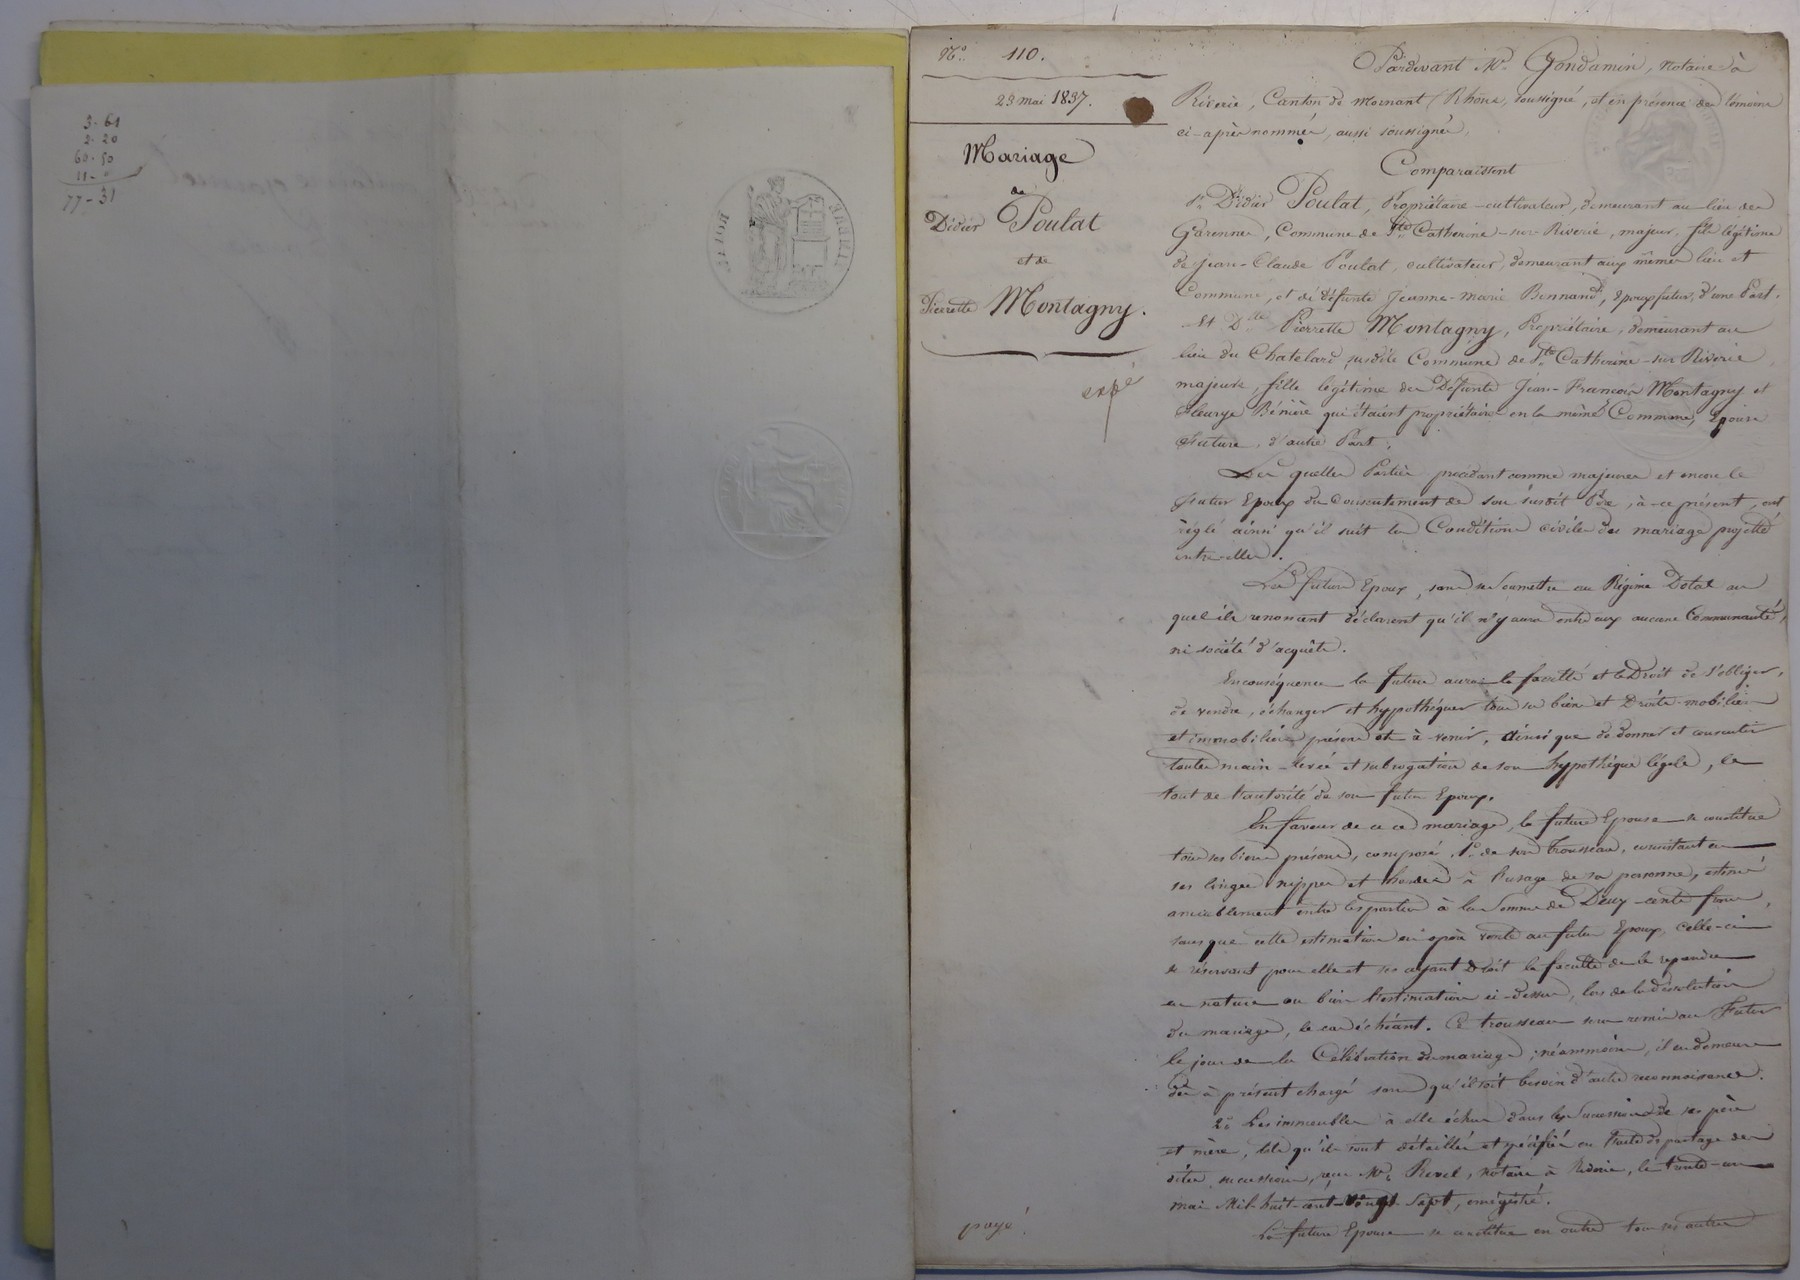 3-61
2-20
60-50
11-0
77-31
TIMBRE
ROYAL
N.o 110.
23 mai 1837.
Mariage
de
Didier Poulat
et de
Pierrette Montagny.
expé
payé
Pardevant Me Gondamin, notaire à
Riverie, Canton de Mornant (Rhône) soussigné, et en présence des témoins
ci-après nommés, aussi soussignés,
Comparaissent
Sr Didier Poulat, Propriétaire-cultivateur, demeurant au lieu de
Garenne, Commune de Ste Catherine-sur-Riverie, majeur, fils légitime
de Jean-Claude Poulat, cultivateur, demeurant aux mêmes lieu et
Commune, et de défunte Jeanne-Marie Bonnand, époux futur, d'une Part.
Et Dlle Pierrette Montagny, Propriétaire, demeurant au
lieu du Chatelard, susdite Commune de Ste Catherine-sur Riverie
majeure, fille légitime de Défunts Jean-François Montagny et
Fleurye Bénière qui étaient propriétaires en la même Commune, épouse
Future, d'autre Part.
Les quelles Parties procédant comme majeures et encore le
Futur Epoux du Consentement de son susdit Père, à-ce présent, ont
réglé ainsi qu'il suit les Conditions civiles du mariage projetté
entr-elles.
Les futurs Epoux, sans se soumettre au Régime Dotal au
quel ils renoncent déclarent qu'il n'y aura entr'eux aucune Communauté,
ni société d'acquêts.
En conséquence la future aura la faculté et le Droit de s'obliger,
de vendre, échanger et hypothéquer tous ses biens et Droits mobiliers
et immobiliers présens et à venir, ainsi que de donner et consentir
toutes main-levée et subrogation de son hypothèque légale, le
tout de l'autorité de son futur Epoux.
En faveur de ce mariage, la future Epouse se constitue
tous ses biens présens, composés, 1o de son Trousseau, consistant en
ses linges nippes et hardes à l'usage de sa personne, estimé
amiablement entre les parties à la Somme de Deux-cents francs,
sans que cette estimation en opère vente au futur Epoux, celle-ci
se réservant pour elle et ses ayant Droit la faculté de le reprendre
en nature ou bien l'estimation ci-dessus, lors de la dissolution
du mariage, le cas échéant. Ce trousseau sera remis au Futur
le jour de la Célébration du mariage; néanmoins, il en demeure
dès à présent chargé sans qu'il soit besoin d'autre reconnaissance.
2o Les immeubles à elle échus dans les Successions de ses père
et mère, tels qu'ils sont détaillés et spécifiés au traité de partage des
dites successions, reçu Me Revel, notaire à Riverie, le trente-un
mai Mil-huit-cent-vingt-Sept, enregistré.
La future Epouse se constitue en outre tous ses autres